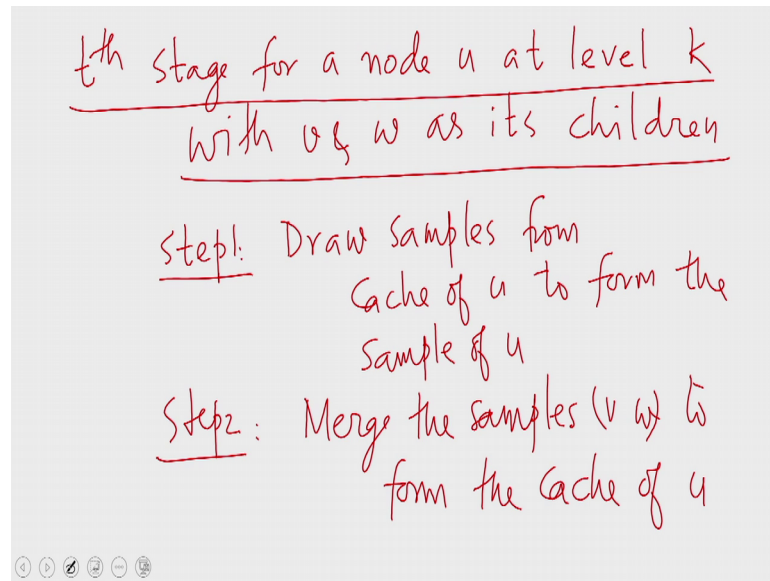 tth stage for a node u at level k
with v & w as its children
Step1: Draw samples from
Cache of u to form the
Sample of u
Step2: Merge the samples (v w) to
form the cache of u